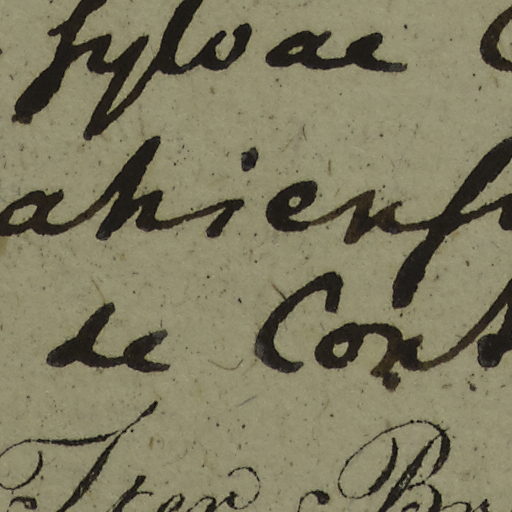 sylvae
ahiens
de Con
Iter Br